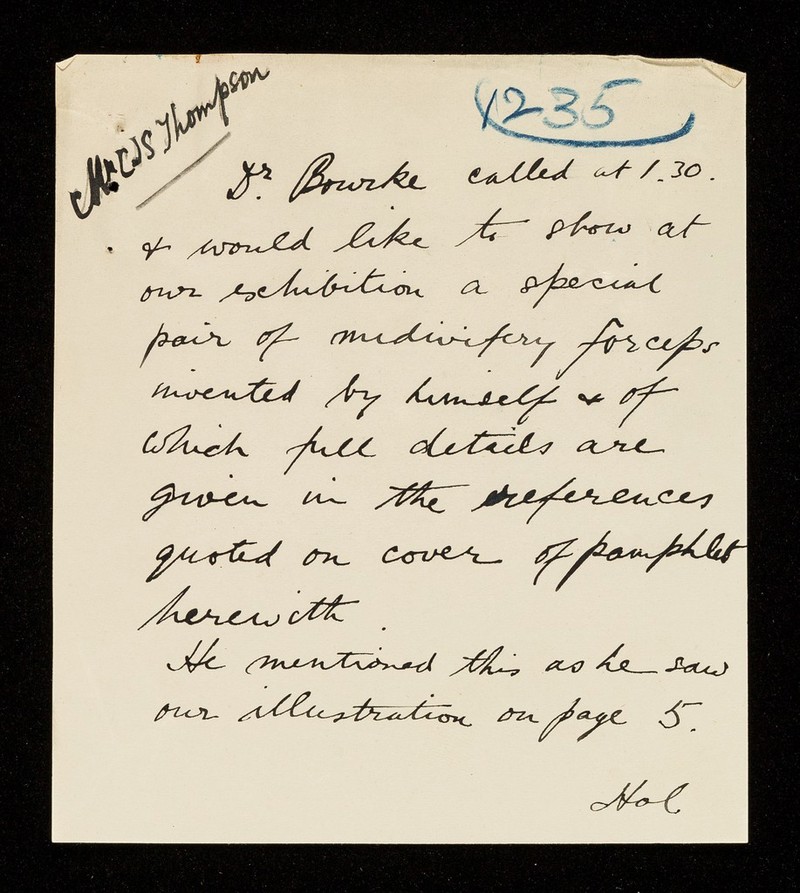 Mr CJS Thompson
1235
Dr. Bourke called at 1.30.
& would like to show at
our exhibition a special
pair of midwifery forceps
invented by himself & of
which full details are
given in the references
quoted on cover of pamphlet
herewith.
He mentioned this as he saw
our illustration on page 5.